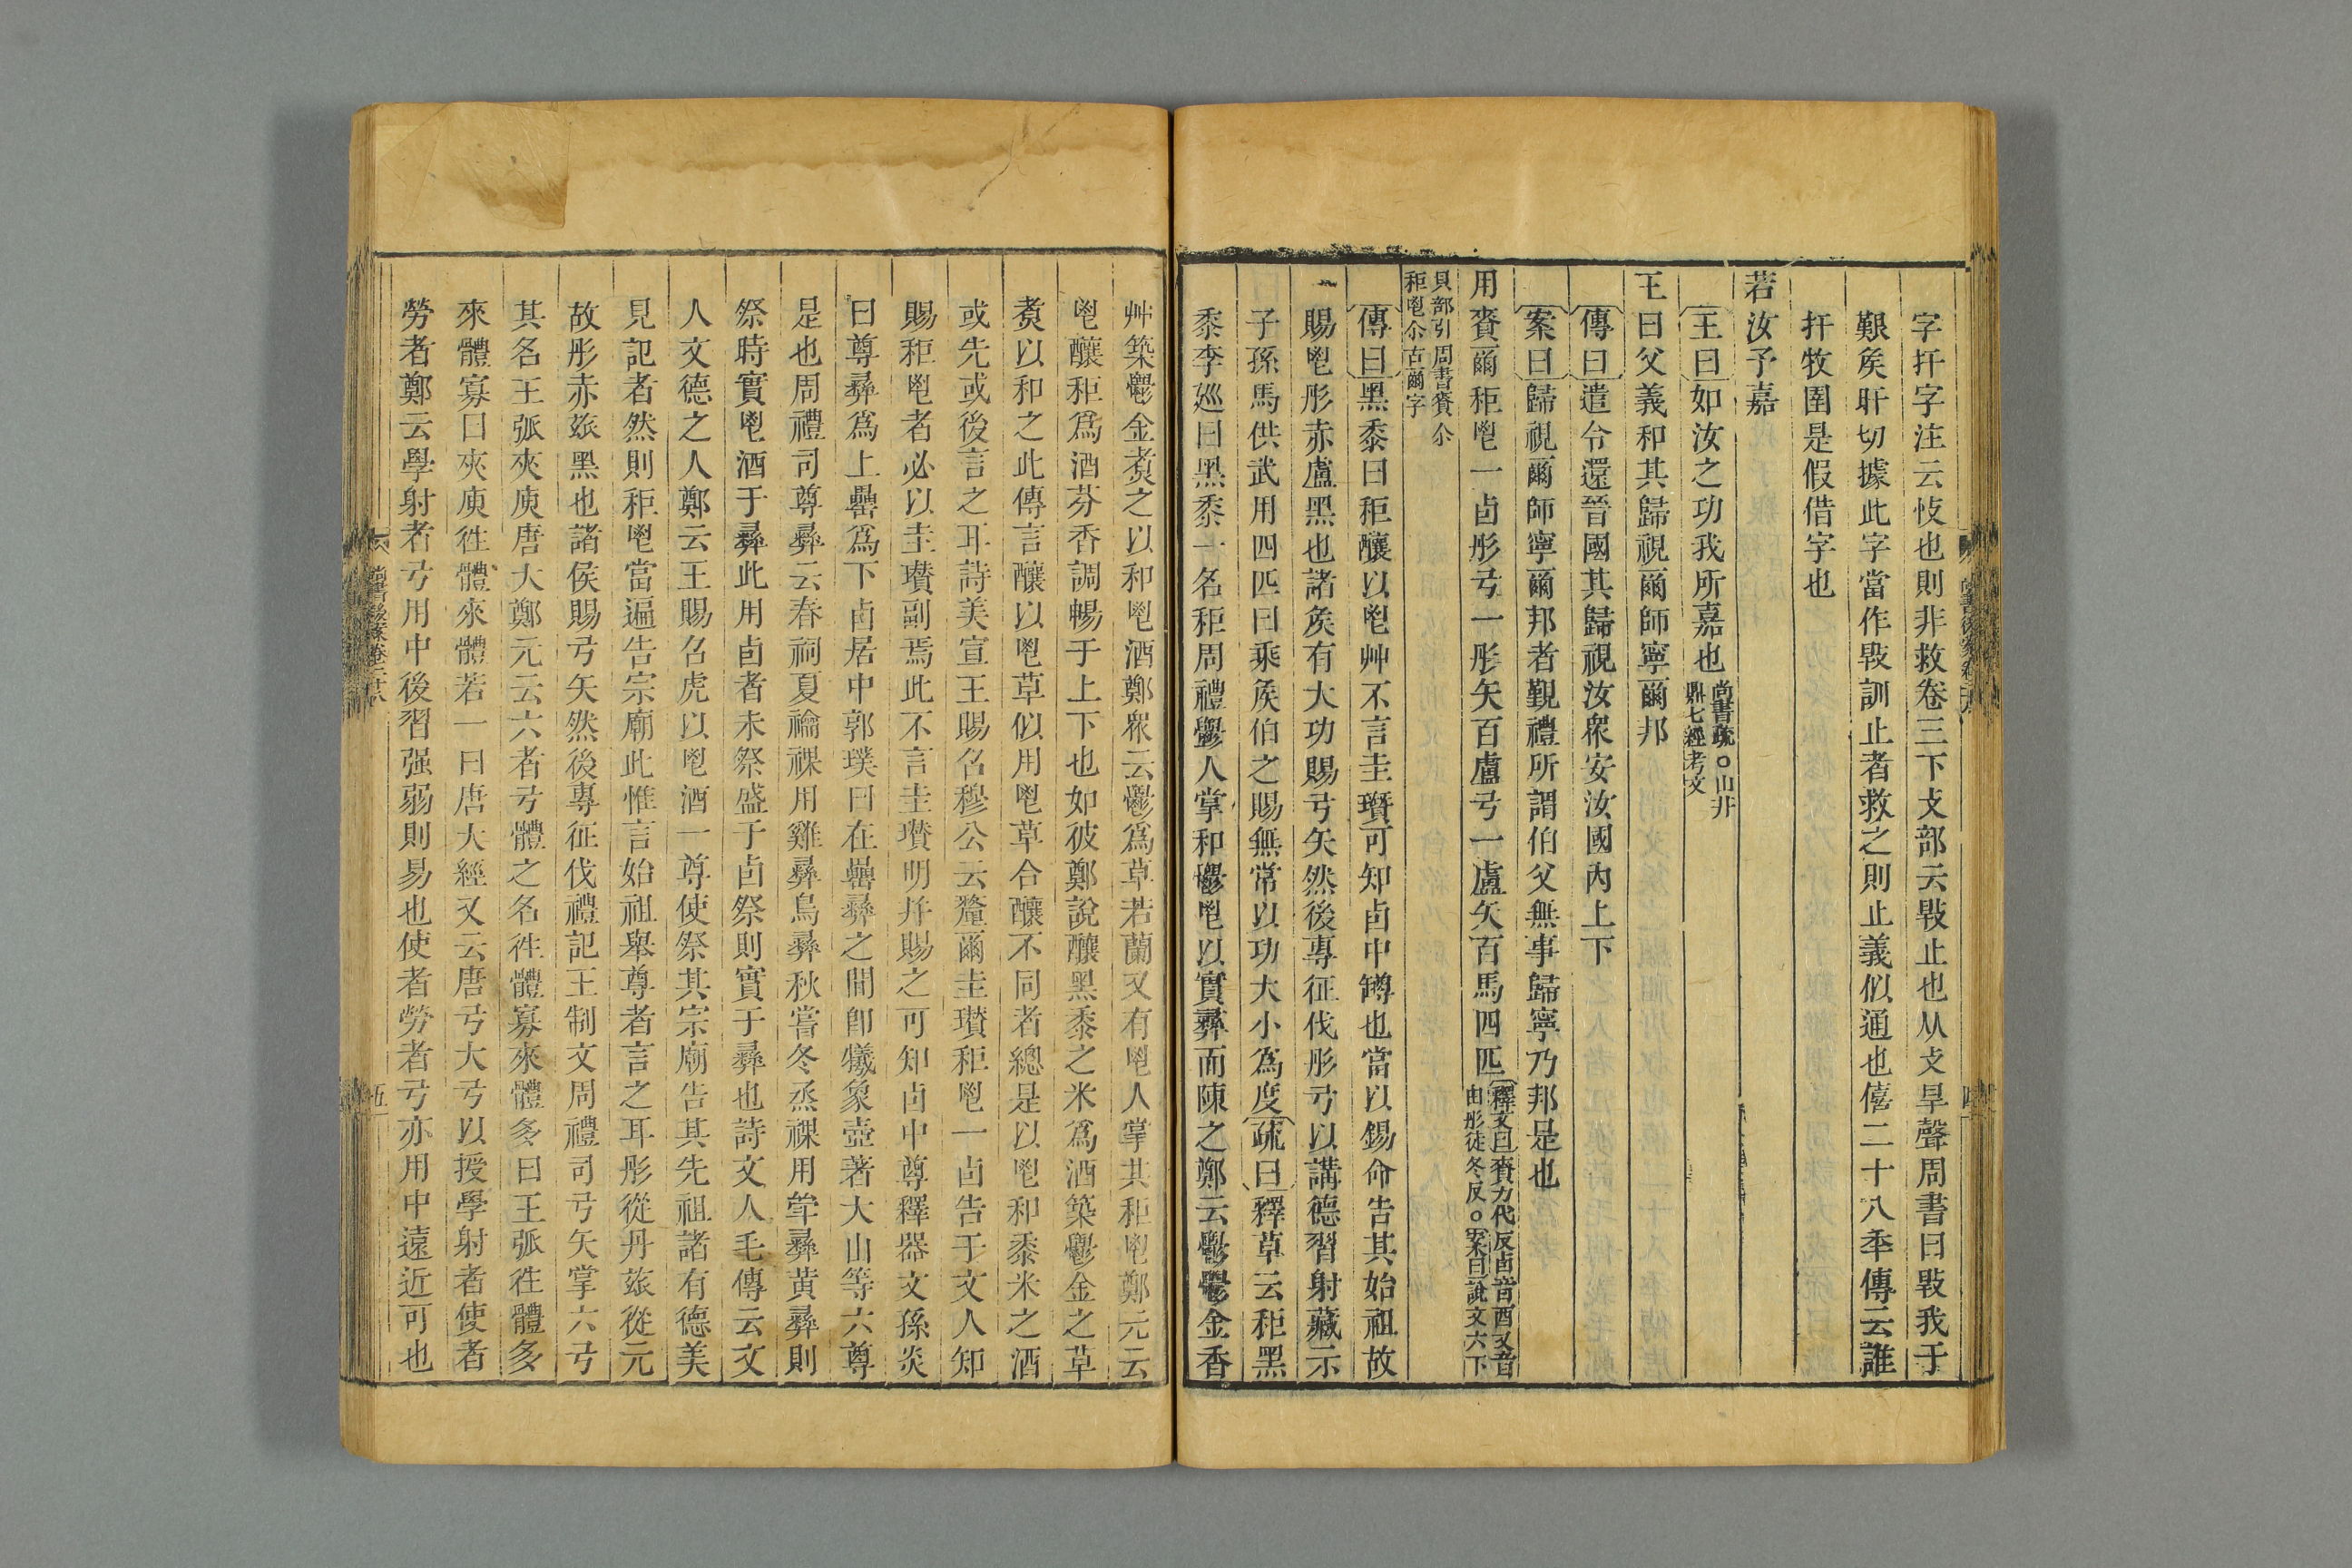 字扞字注云忮也則非救卷三下攴部云斁止也从攴旱聲周書曰斁我于
艱矦旰切據此字當作斁訓止者救之則止義似通也僖二十八秊傳云誰
扞牧圉是假借字也
若汝予嘉
王曰如汝之功我所嘉也尚書疏○山井鼎七經考文
王曰父義和其歸視爾師寧爾邦
傳曰遣令還晉國其歸視汝衆安汝國內上下
案曰歸視爾師寧爾邦者覲禮所謂伯父無事歸寧乃邦是也
用賚爾秬鬯一卣彤弓一彤矢百盧弓一盧矢百馬四匹釋文曰賚力代反卣音酉又音由彤徒冬反○案曰說文六下
貝部引周書賚尒秬鬯尒古爾字
傳曰黑黍曰秬釀以鬯艸不言圭瓚可知卣中罇也當以錫命告其始祖故
賜鬯彤赤盧黑也諸矦有大功賜弓矢然後專征伐彤弓以講德習射藏示
子孫馬供武用四匹曰乘矦伯之賜無常以功大小爲度疏曰釋草云秬黑
黍李巡曰黑黍一名秬周禮鬱人掌和鬱鬯以實彝而陳之鄭云鬱鬱金香
艸築鬱金煑之以和鬯酒鄭衆云鬱爲草若蘭又有鬯人掌共秬鬯鄭元云
鬯釀秬爲酒芬香調暢于上下也如彼鄭說釀黑黍之米爲酒築鬱金之草
煑以和之此傳言釀以鬯草似用鬯草合釀不同者總是以鬯和黍米之酒
或先或後言之耳詩美宣王賜召穆公云釐爾圭瓚秬鬯一卣告于文人知
賜秬鬯者必以圭瓚副焉此不言圭瓚明幷賜之可知卣中尊釋器文孫炎
曰尊彝爲上罍爲下卣居中郭璞曰在罍彝之間卽犧象壺著大山等六尊
是也周禮司尊彝云春祠夏禴祼用雞彝鳥彝秋嘗冬烝祼用斝彝黃彝則
祭時實鬯酒于彝此用卣者未祭盛于卣祭則實于彝也詩文人毛傳云文
人文德之人鄭云王賜召虎以鬯酒一尊使祭其宗廟告其先祖諸有德美
見記者然則秬鬯當遍告宗廟此惟言始祖舉尊者言之耳彤從丹玈從元
故彤赤玈黑也諸侯賜弓矢然後專征伐禮記王制文周禮司弓矢掌六弓
其名王弧夾庾唐大鄭元云六者弓體之名往體寡來體多曰王弧往體多
來體寡曰夾庾往體來體若一曰唐大經又云唐弓大弓以授學射者使者
勞者鄭云學射者弓用中後習强弱則易也使者勞者弓亦用中遠近可也
尚書後案卷二十八
五